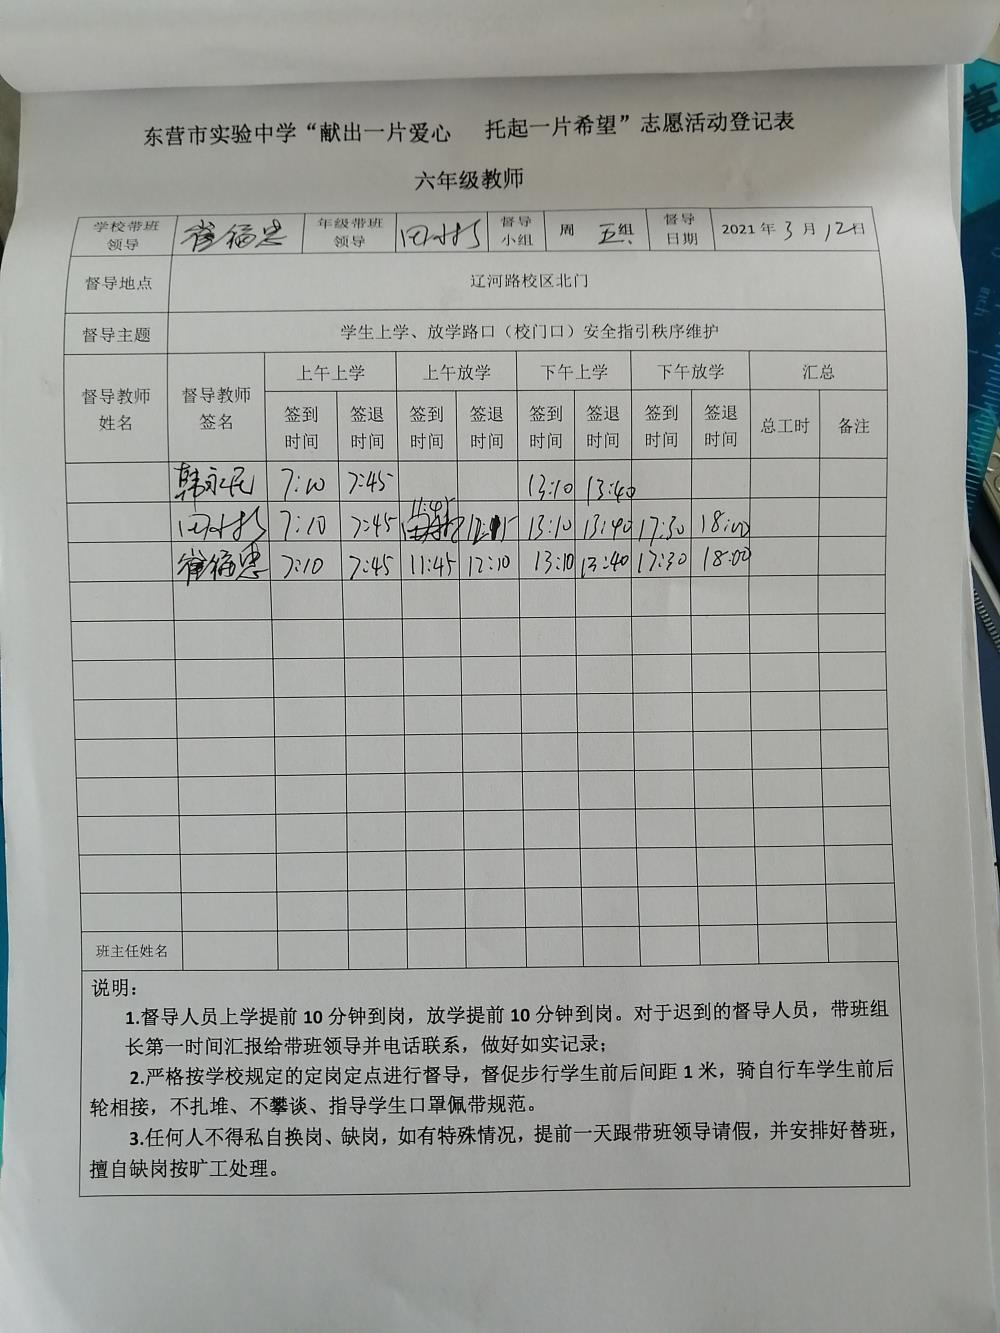 东营市实验中学“献出一片爱心 托起一片希望”志愿活动登记表
六年级教师
学校带班领导 崔福忠 年级带班领导 督导小组 周 五组 督导日期 2021年3月12日
督导地点 辽河路校区北门
督导主题 学生上学、放学路口（校门口）安全指引秩序维护
督导教师姓名 督导教师签名 上午上学 上午放学 下午上学 下午放学 汇总
签到时间 签退时间 签到时间 签退时间 签到时间 签退时间 签到时间 签退时间 总工时 备注
韩永民 7:10 7:45 13:10 13:40
7:10 7:45 11:45 13:10 13:40 17:30 18:00
崔福忠 7:10 7:45 11:45 12:10 13:10 13:40 17:30 18:00
班主任姓名
说明：
1.督导人员上学提前10分钟到岗，放学提前10分钟到岗。对于迟到的督导人员，带班组
长第一时间汇报给带班领导并电话联系，做好如实记录；
2.严格按学校规定的定岗定点进行督导，督促步行学生前后间距1米，骑自行车学生前后
轮相接，不扎堆、不攀谈、指导学生口罩佩带规范。
3.任何人不得私自换岗、缺岗，如有特殊情况，提前一天跟带班领导请假，并安排好替班，
擅自缺岗按旷工处理。